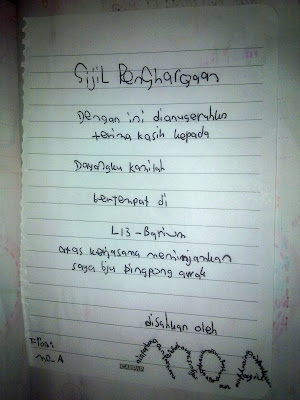 Sijil Penghargaan
Dengan ini dianugerahkn
terima kasih kepada
Dayangku Kamilah
bertempat di
L13-Barium
atas kerjasama meminjamkan
saya bju pingpong awak
disahkan oleh
mo_A
MO_A